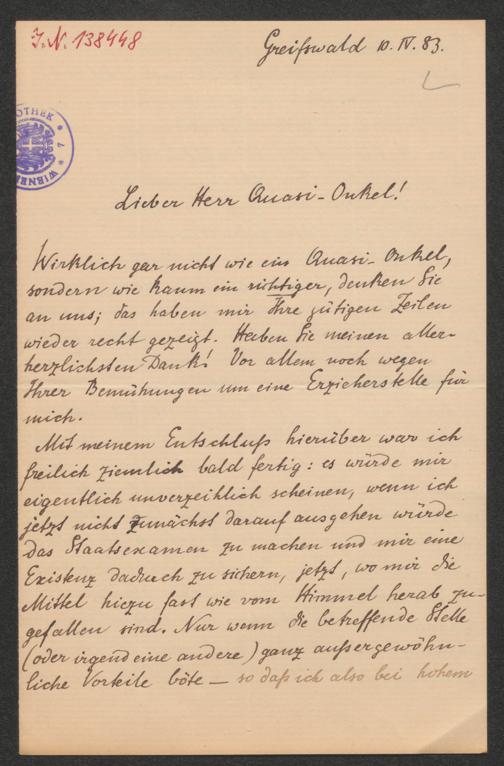 J.N. 138448
Greifswald 10. IV. 83.
OTHEK * 7 * WIENE
Lieber Herr Quasi-Onkel!
Wirklich gar nicht wie ein Quasi-Onkel,
sondern wie kaum ein richtiger, denken Sie
an uns; das haben mir Ihre gütigen Zeilen
wieder recht gezeigt. Haben Sie meinen aller-
herzlichsten Dank! Vor allem noch wegen
Ihrer Bemühungen um eine Erzieherstelle für
mich.
Mit meinem Entschluß hierüber war ich
freilich ziemlich bald fertig: es würde mir
eigentlich unverzeihlich scheinen, wenn ich
jetzt nicht zunächst darauf ausgehen würde
das Staatsexamen zu machen und mir eine
Existenz dadruch zu sichern, jetzt, wo mir die
Mittel hiezu fast wie vom Himmel herab zu-
gefallen sind. Nur wenn die betreffende Stelle
(oder irgend eine andere) ganz außergewöhn-
liche Vorteile böte — so daß ich also bei hohem